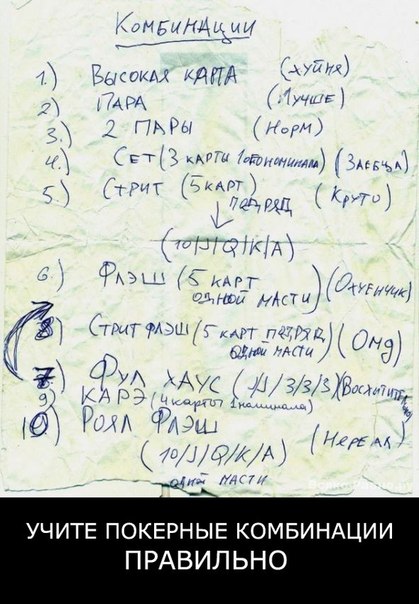 Комбинации
1.) Высокая карта (хуйня)
2) Пара (Лучше)
3.) 2 пары (Норм)
4.) Сет (3 карты 1ого номинала) (Заебца)
5.) Стрит (5 карт подряд) (Круто)
(10/J/Q/K/A)
6.) Флэш (5 карт одной масти) (Охуенчик)
8) Стрит флэш (5 карт подряд одной масти) (Омд)
7 Фул хаус (J/J/3/3/3) (Восхитител
9) Карэ (4 карты 1 наминала)
10) Роял Флэш (Нереал)
(10/J/Q/K/A)
одной масти
УЧИТЕ ПОКЕРНЫЕ КОМБИНАЦИИ
ПРАВИЛЬНО